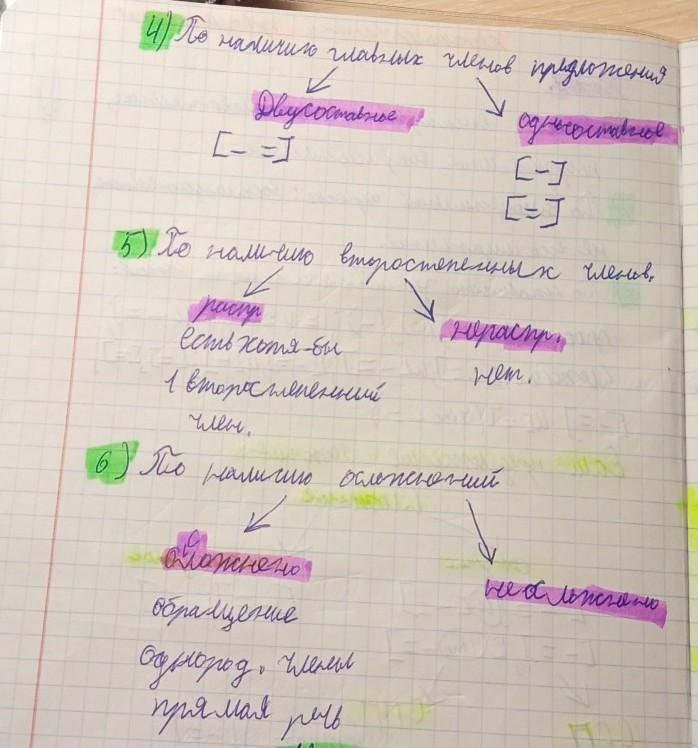 4) По наличию главных членов предложения
Двусоставное односоставное
[- =] [-]
[=]
5) По наличию второстепенных членов.
распр нераспр.
есть хотя-бы нет.
1 второстепенный
член.
6) По наличию осложнений
осложнено не осложнено
обращение
однород. члены
прямая речь